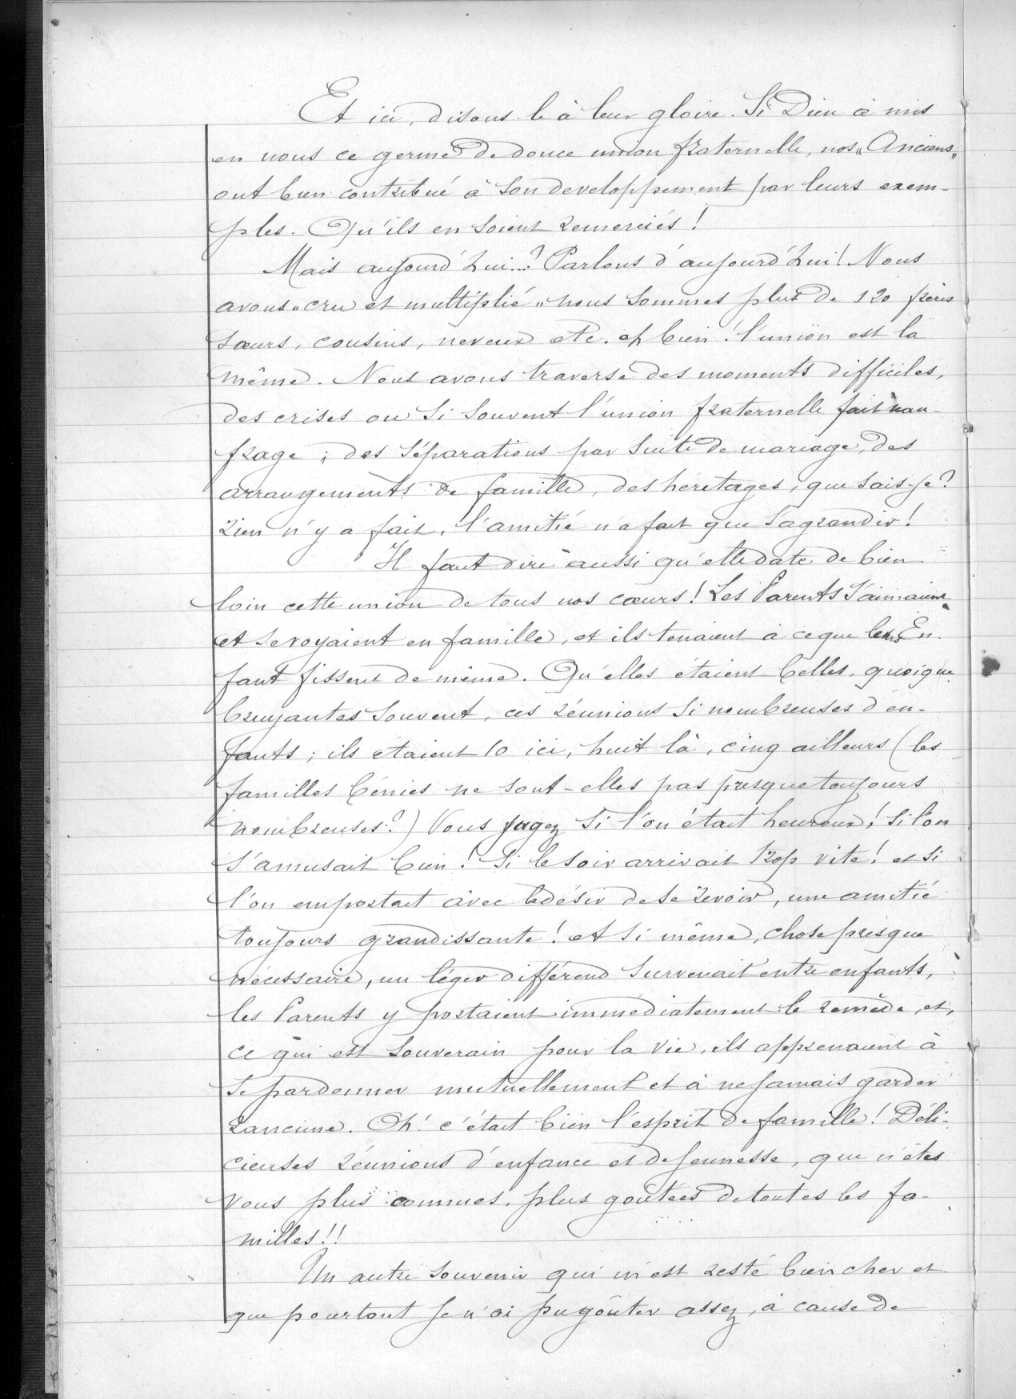 Et ici, disons le à leur gloire. Si Dieu a mis
en nous ce germe de douce union fraternelle, nos "Anciens"
ont bien contribué à son developpement par leurs exem-
ples. Qu'ils en soient remerciés!
Mais aujourd'hui...? Parlons d'aujourd'hui! Nous
avons "cru et multiplié" nous sommes plus de 120 frères
sœurs, cousins, neveux etc. eh bien! l'union est la
même. Nous avons traversé des moments difficiles,
des crises ou si souvent l'union fraternelle fait nau-
frage; des séparations par suite de mariage, des
arrangements de famille, des héretages, que sais-je?
rien n'y a fait, l'amitié n'a fait que s'agrandir!
Il faut dire aussi qu'elle date de bien
loin cette union de tous nos cœurs! Les Parents s'aimaient
et se voyaient en famille, et ils tenaient à ce que les En-
fant fissent de même. Qu'elles étaient belles, quoique
bruyantes souvent, ces réunions si nombreuses d'en-
fants; ils étaient 10 ici, huit là, cinq ailleurs (les
familles bénies ne sont-elles pas presque toujours
nombreuses?) Vous jugez si l'on était heureux! si l'on
s'amusait bien! Si le soir arrivait trop vite! et si
l'on emportait avec le désir de se revoir, une amitié
toujours grandissante! et si même, chose presque
nécessaire, un léger différend survenait entre enfants,
les Parents y portaient immediatement le remède, et,
ce qui est souverain pour la vie, ils apprenaient à
se pardonner mutuellement et à ne jamais garder
rancune. Oh! c'était bien l'esprit de famille! Déli-
cieuses réunions d'enfance et de jeunesse, que n'êtes
vous plus connues, plus goûtées de toutes les fa-
milles!!
Un autre souvenir qui m'est resté bien cher et
que pourtant je n'ai pu goûter assez, à cause de